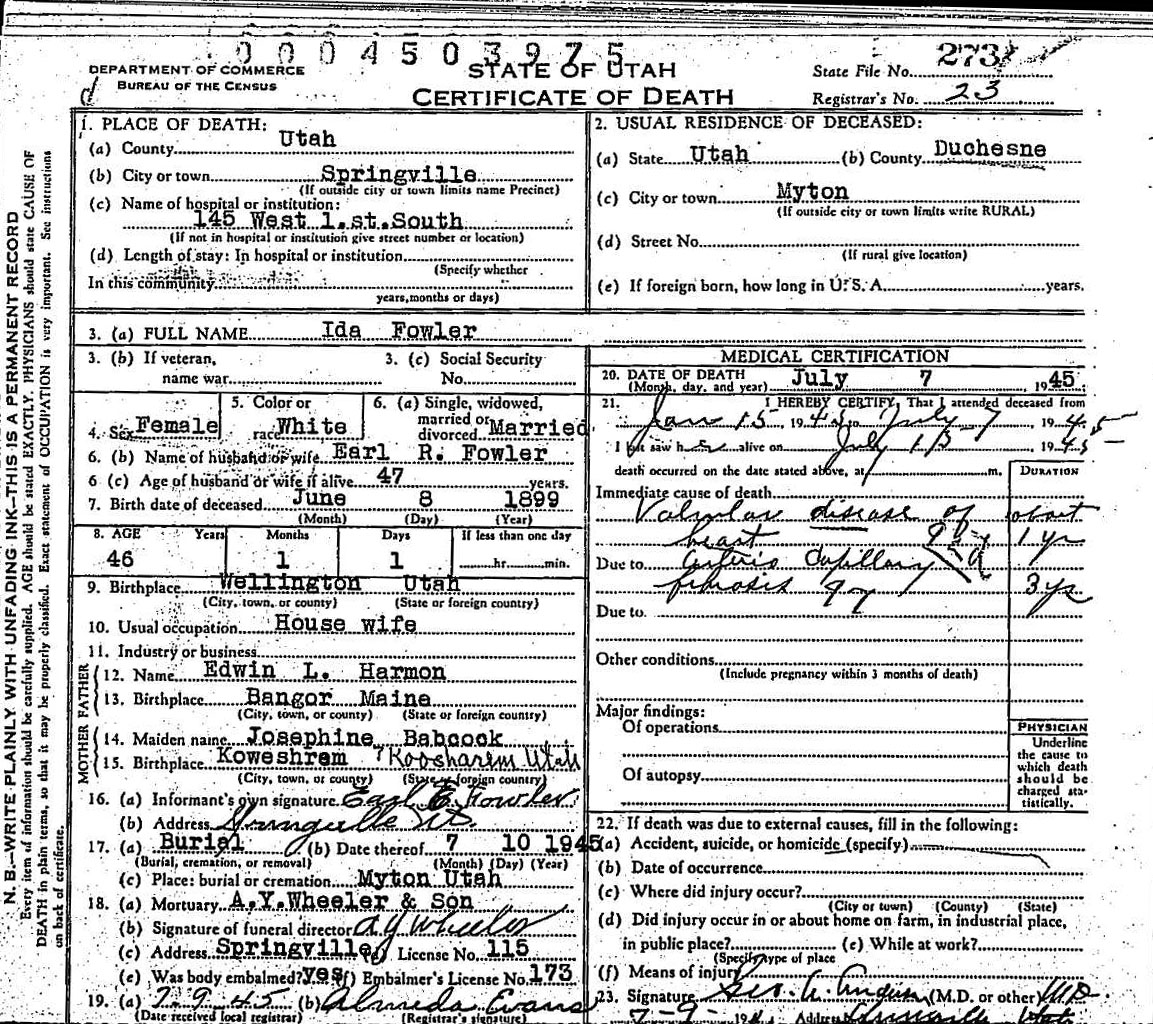 0004503975
DEPARTMENT OF COMMERCE
BUREAU OF THE CENSUS
STATE OF UTAH
CERTIFICATE OF DEATH
State File No. 273
Registrar's No. 23
N. B.—WRITE PLAINLY WITH UNFADING INK—THIS IS A PERMANENT RECORD
Every item of information should be carefully supplied. AGE should be stated EXACTLY. PHYSICIANS should state CAUSE OF
DEATH in plain terms, so that it may be properly classified. Exact statement of OCCUPATION is very important. See instructions
on back of certificate.
1. PLACE OF DEATH:
(a) County Utah
(b) City or town Springville
(If outside city or town limits name Precinct)
(c) Name of hospital or institution:
145 West 1.st.South
(If not in hospital or institution give street number or location)
(d) Length of stay: In hospital or institution
(Specify whether
In this community
years, months or days)
2. USUAL RESIDENCE OF DECEASED:
(a) State Utah (b) County Duchesne
(c) City or town Myton
(If outside city or town limits write RURAL)
(d) Street No.
(If rural give location)
(e) If foreign born, how long in U. S. A. years.
3. (a) FULL NAME Ida Fowler
3. (b) If veteran,
name war
3. (c) Social Security
No.
4. Sex Female
5. Color or
race White
6. (a) Single, widowed,
married or
divorced Married
6. (b) Name of husband or wife Earl R. Fowler
6 (c) Age of husband or wife if alive 47 years.
7. Birth date of deceased June 8 1899
(Month) (Day) (Year)
8. AGE Years Months Days If less than one day
46 1 1 hr. min.
9. Birthplace Wellington Utah
(City, town, or county) (State or foreign country)
10. Usual occupation House wife
11. Industry or business
FATHER
12. Name Edwin L. Harmon
13. Birthplace Bangor Maine
(City, town, or county) (State or foreign country)
MOTHER
14. Maiden name Josephine Babcock
15. Birthplace Koweshrem ? Koosharem Utah
(City, town, or county) (State or foreign country)
16. (a) Informant's own signature Earl Fowler
(b) Address Springville Ut.
17. (a) Burial (b) Date thereof 7 10 1945
(Burial, cremation, or removal) (Month) (Day) (Year)
(c) Place: burial or cremation Myton Utah
18. (a) Mortuary A.Y.Wheeler & Son
(b) Signature of funeral director A Y Wheeler
(c) Address Springville License No. 115
(e) Was body embalmed? yes (f) Embalmer's License No. 173
19. (a) 7 9 45 (b) Almeda Evans
(Date received local registrar) (Registrar's signature)
MEDICAL CERTIFICATION
20. DATE OF DEATH
(Month, day, and year) July 7, 1945
21. I HEREBY CERTIFY, That I attended deceased from
Jan 15, 1945 to July 7, 1945
I last saw h alive on July 1945
death occurred on the date stated above, at m.
DURATION
Immediate cause of death
Valvular disease of about
heart 1 yr
Due to Arterio Capillary
fibrosis 97 3 ys
Due to
Other conditions
(Include pregnancy within 3 months of death)
Major findings:
Of operations
Of autopsy
PHYSICIAN
Underline
the cause to
which death
should be
charged sta-
tistically.
22. If death was due to external causes, fill in the following:
(a) Accident, suicide, or homicide (specify)
(b) Date of occurrence
(c) Where did injury occur?
(City or town) (County) (State)
(d) Did injury occur in or about home on farm, in industrial place,
in public place? (e) While at work?
(Specify type of place
(f) Means of injury
23. Signature Geo. A. (M.D. or other) M.D.
7-9- 194 Address Springville Utah